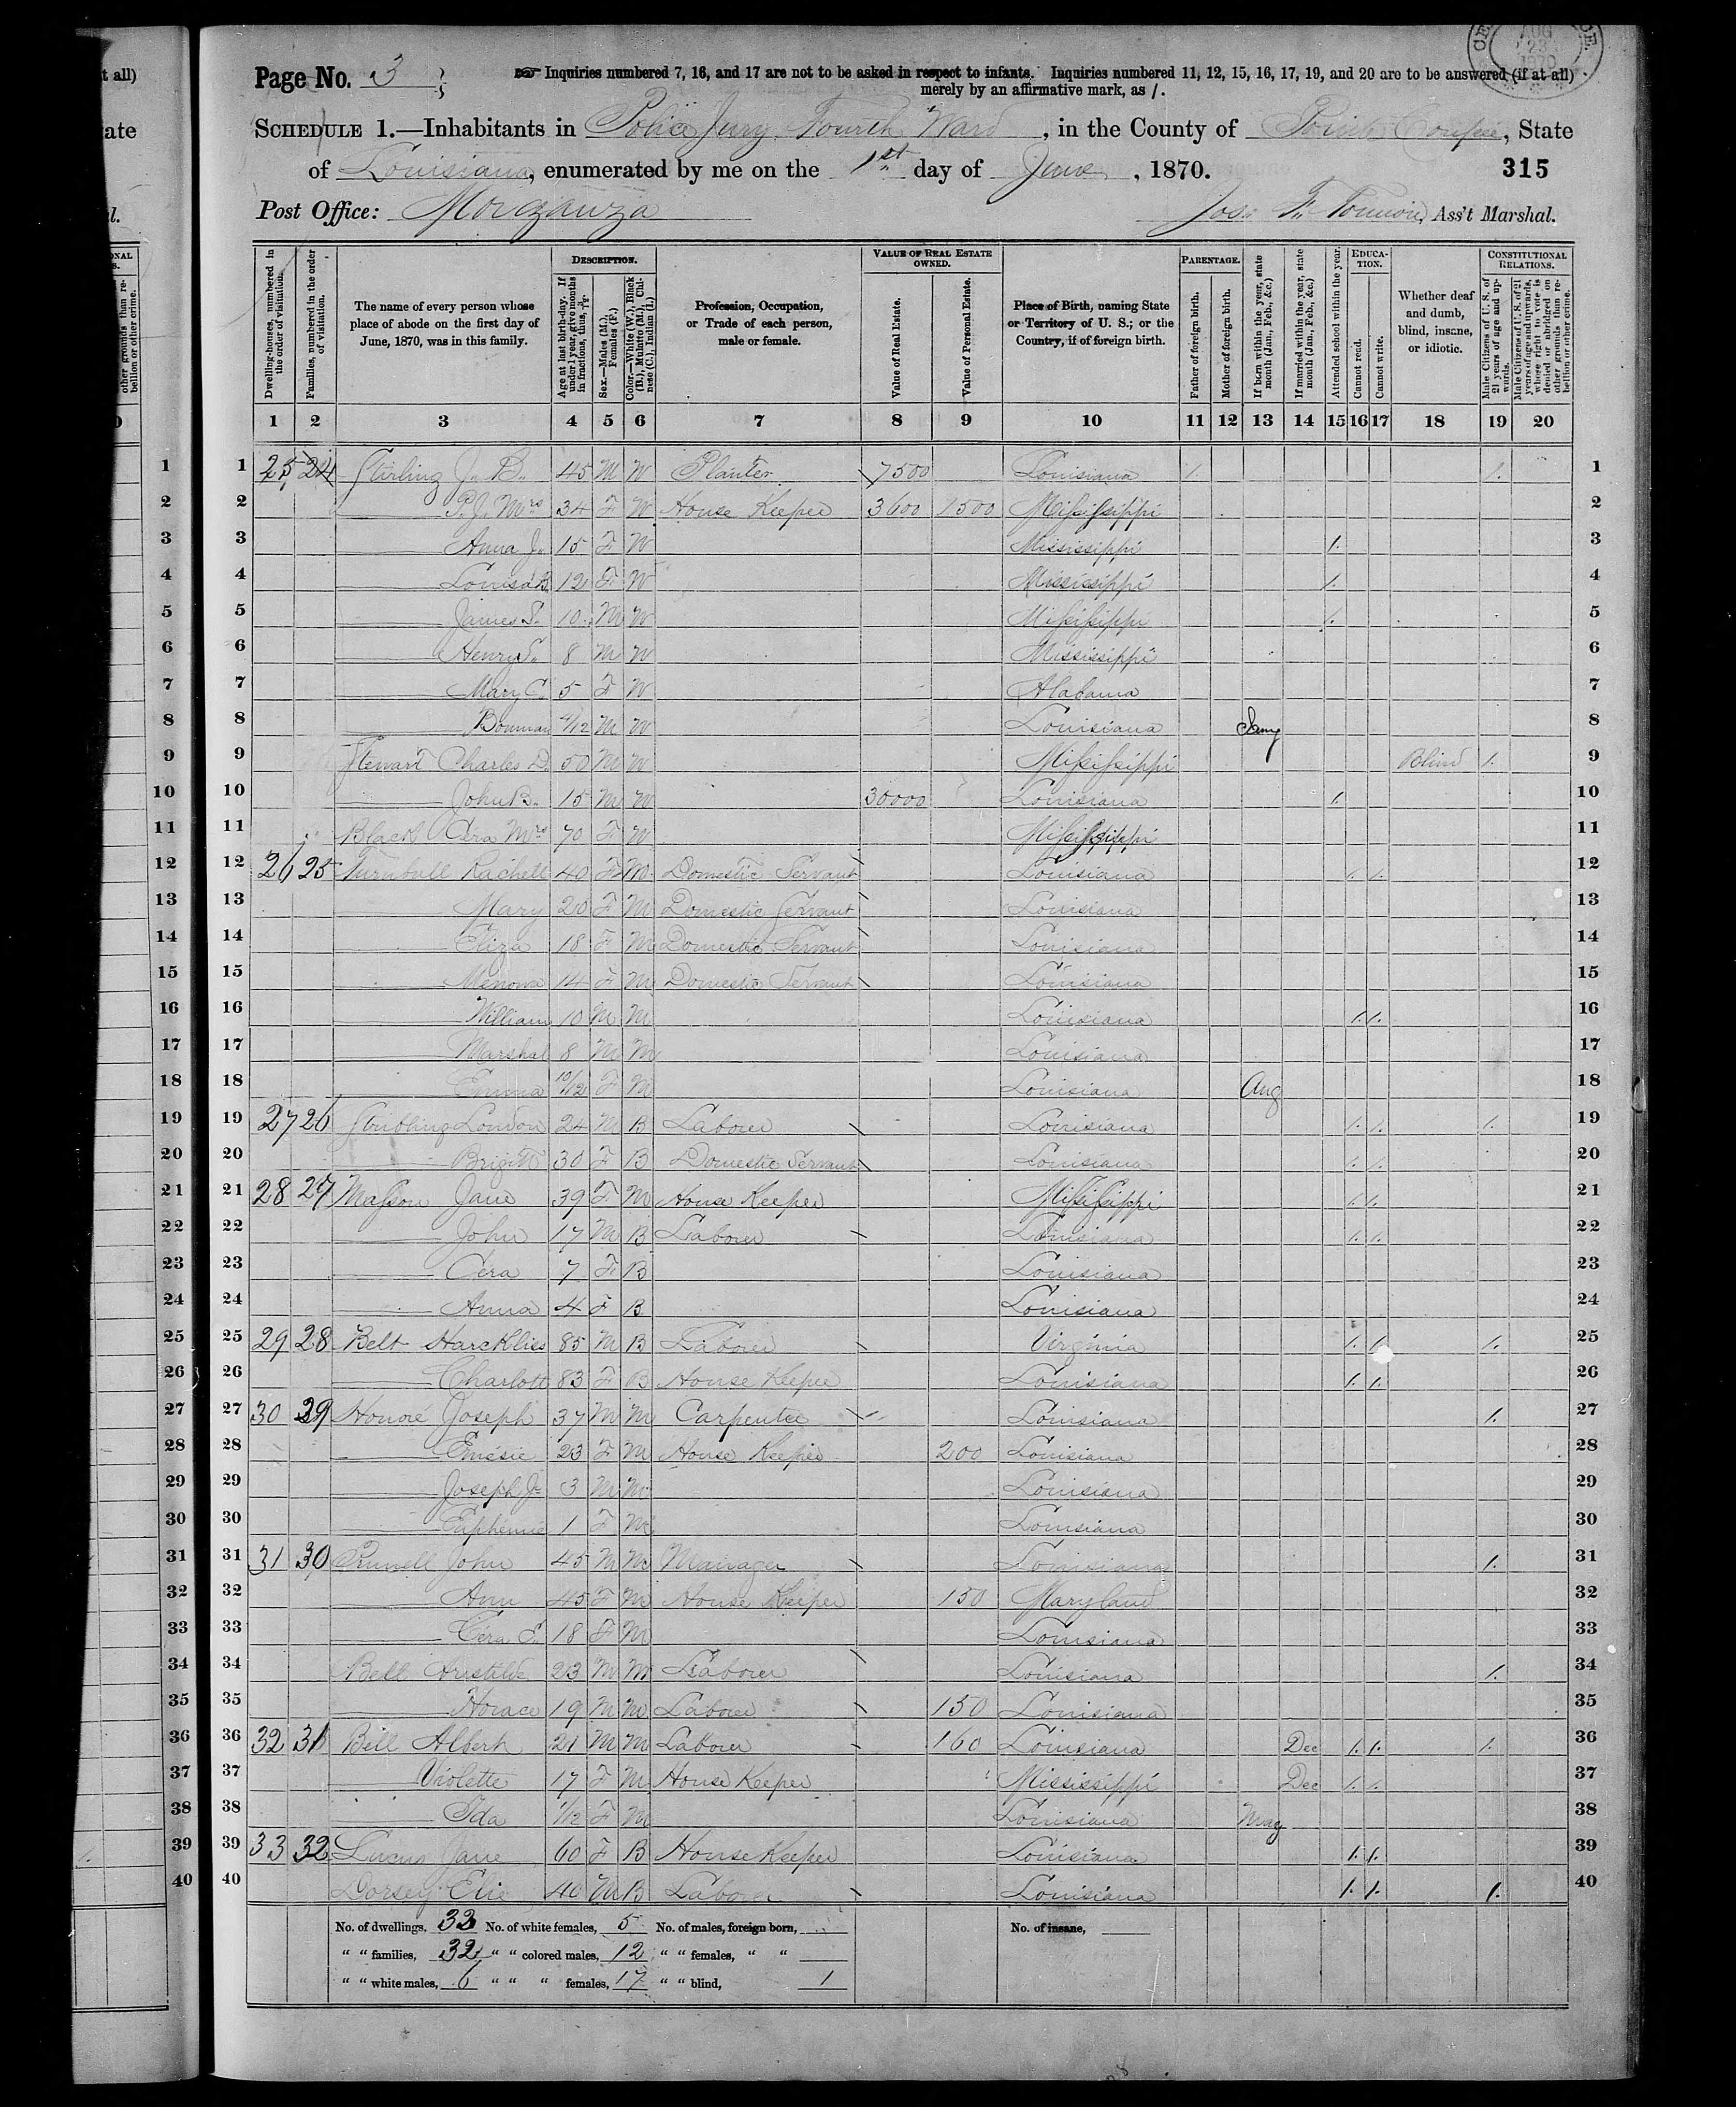 Page No. 3
☞ Inquiries numbered 7, 16, and 17 are not to be asked in respect to infants. Inquiries numbered 11, 12, 15, 16, 17, 19, and 20 are to be answered (if at all)
merely by an affirmative mark, as /.
AUG 23 1870
SCHEDULE 1.—Inhabitants in Police Jury Fourth Ward, in the County of Pointe Coupee, State
of Louisiana, enumerated by me on the 1st day of June, 1870.
315
Post Office: Morganza
Jos. F. , Ass't Marshal.
Dwelling-houses, numbered in the order of visitation.
Families, numbered in the order of visitation.
The name of every person whose place of abode on the first day of June, 1870, was in this family.
DESCRIPTION.
Age at last birth-day. If under 1 year, give months in fractions, thus, 3/12.
Sex.—Males (M.), Females (F.)
Color.—White (W.), Black (B.), Mulatto (M.), Chinese (C.), Indian (I.)
Profession, Occupation, or Trade of each person, male or female.
VALUE OF REAL ESTATE OWNED.
Value of Real Estate.
Value of Personal Estate.
Place of Birth, naming State or Territory of U. S.; or the Country, if of foreign birth.
PARENTAGE.
Father of foreign birth.
Mother of foreign birth.
If born within the year, state month (Jan., Feb., &c.)
If married within the year, state month (Jan., Feb., &c.)
Attended school within the year.
EDUCATION.
Cannot read.
Cannot write.
Whether deaf and dumb, blind, insane, or idiotic.
CONSTITUTIONAL RELATIONS.
Male Citizens of U. S. of 21 years of age and upwards.
Male Citizens of U. S. of 21 years of age and upwards, whose right to vote is denied or abridged on other grounds than rebellion or other crime.
1 2 3 4 5 6 7 8 9 10 11 12 13 14 15 16 17 18 19 20
1 25 24 Stirling J. B. 45 M W Planter 7500 Louisiana 1. 1. 1
2 P. J. Mrs 34 F W House Keeper 3600 1500 Mississippi 2
3 Anna J. 15 F W Mississippi 1. 3
4 Louisa B. 12 F W Mississippi 1. 4
5 James S. 10 M W Mississippi 1. 5
6 Henry S. 8 M W Mississippi 6
7 Mary C. 5 F W Alabama 7
8 Bowman 4/12 M W Louisiana 8
9 Stewart Charles D. 50 M W Mississippi Blind 1. 9
10 John B. 15 M W 30000 Louisiana 1. 10
11 Black Cera Mrs 70 F W Mississippi 11
12 26 25 Turnbull Rachell 40 F M Domestic Servant Louisiana 1. 1. 12
13 Mary 20 F M Domestic Servant Louisiana 13
14 Eliza 18 F M Domestic Servant Louisiana 14
15 14 F M Domestic Servant Louisiana 15
16 William 10 M M Louisiana 1. 1. 16
17 Marshal 8 M M Louisiana 17
18 Emma 10/12 F M Louisiana Aug 18
19 27 26 London 24 M B Laborer Louisiana 1. 1. 1. 19
20 30 F B Domestic Servant Louisiana 1. 1. 20
21 28 27 Masson Jane 39 F M House Keeper Mississippi 1. 1. 21
22 John 17 M B Laborer Louisiana 1. 1. 22
23 Cera 7 F B Louisiana 23
24 Anna 4 F B Louisiana 24
25 29 28 Belt Harckliss 85 M B Laborer Virginia 1. 1. 1. 25
26 Charlott 83 F B House Keeper Louisiana 1. 1. 26
27 30 29 Honoré Joseph 37 M M Carpenter Louisiana 1. 27
28 Emésie 23 F M House Keeper 200 Louisiana 28
29 Joseph Jr 3 M M Louisiana 29
30 Euphémie 1 F M Louisiana 30
31 31 30 John 45 M M Manager Louisiana 1. 31
32 Ann 45 F M House Keeper 150 Maryland 32
33 Cera E. 18 F M Louisiana 33
34 Bell Aristile 23 M M Laborer Louisiana 1. 34
35 Horace 19 M M Laborer 150 Louisiana 35
36 32 31 Bell Albert 21 M M Laborer 160 Louisiana Dec 1. 1. 1. 36
37 Violette 17 F M House Keeper Mississippi Dec 1. 1. 37
38 Ida 1/12 F M Louisiana May 38
39 33 32 Jane 60 F B House Keeper Louisiana 1. 1. 39
40 Dorsey Elie 40 M B Laborer Louisiana 1. 1. 1. 40
No. of dwellings, 32 No. of white females, 5 No. of males, foreign born, No. of insane,
" " families, 32 " " colored males, 12 " " females, " "
" " white males, 6 " " " females, 17 " " blind, 1